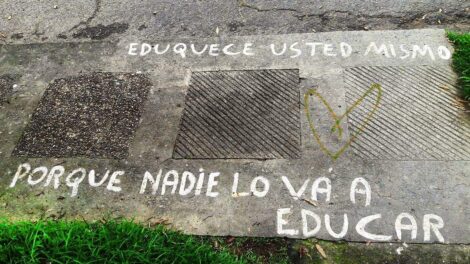 EDUQUECE USTED MISMO
PORQUE NADIE LO VA A
EDUCAR